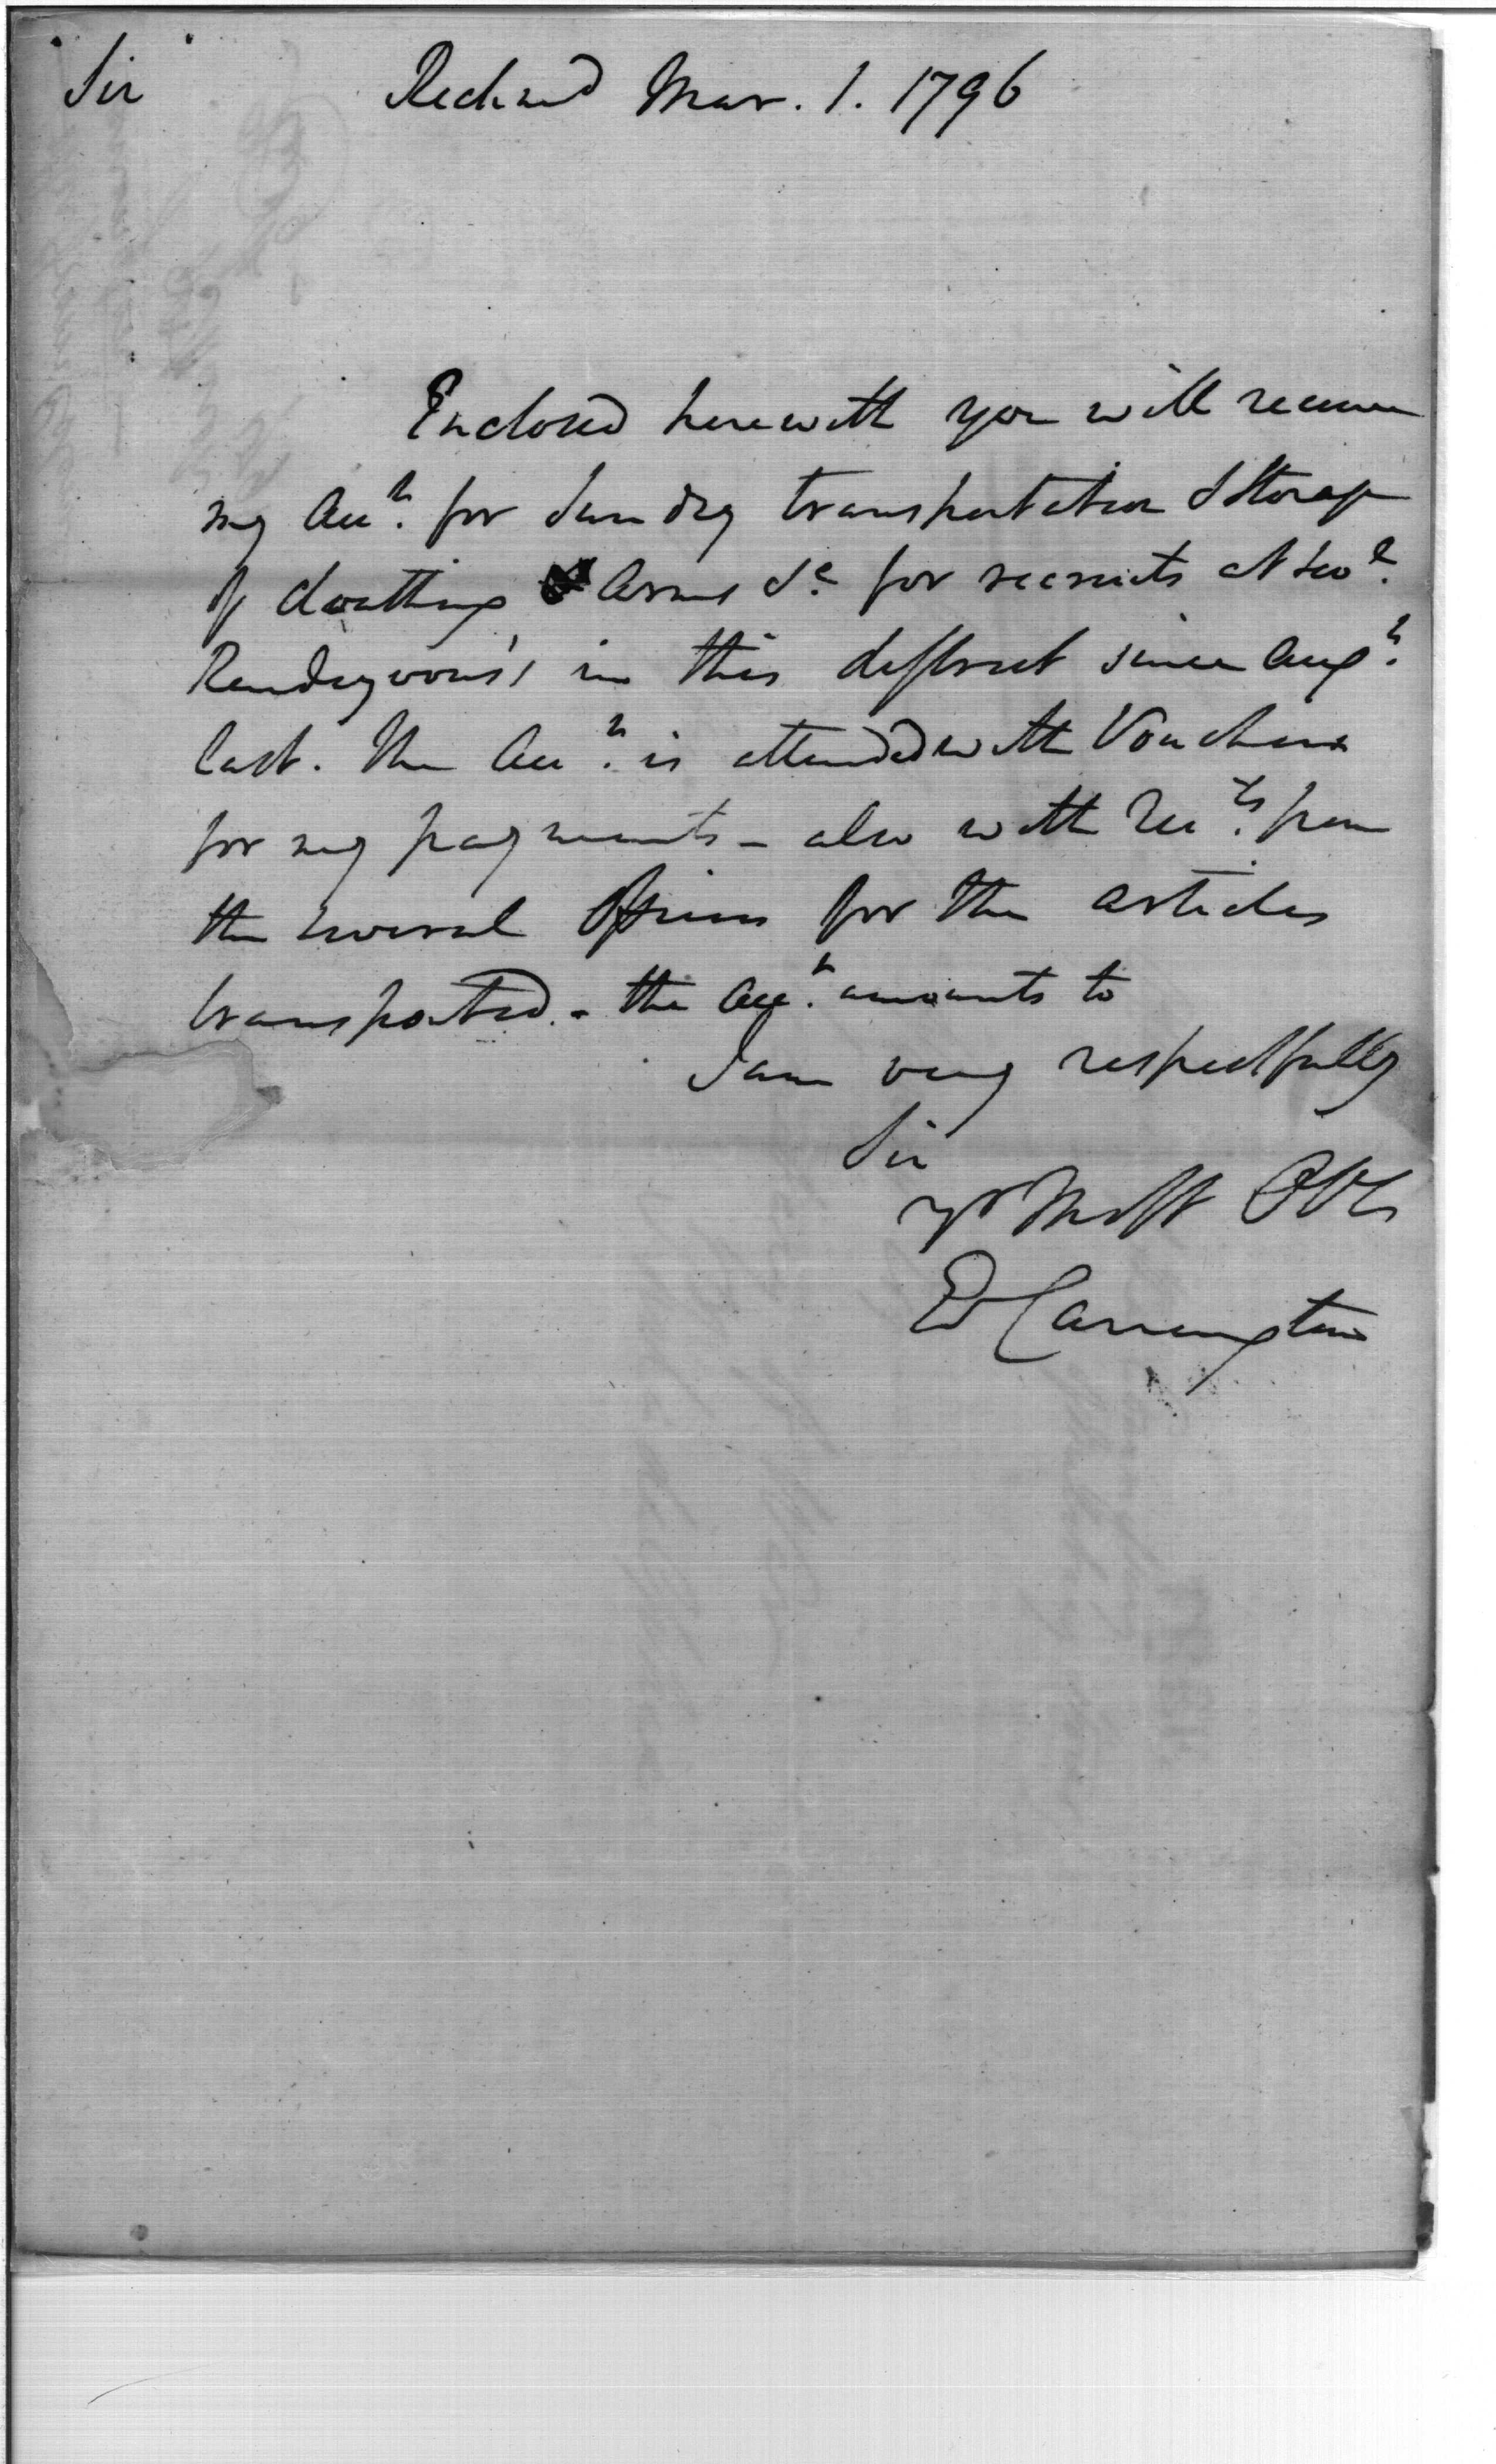 Sir Richmd Mar. 1. 1796
Enclosed herewith you will receive
my Acct. for Sundry transportation & Storage
of cloathing Arms &c. for recruits at sevl.
Rendezvous's in this district since Augt.
last. The Acct. is attended with Vouchers
for my payments - also with Recets. from
the several Officers for the articles
transported. - the Acct. amounts to
I am very respectfully
Sir
yr Most Obt
Ed Carrington